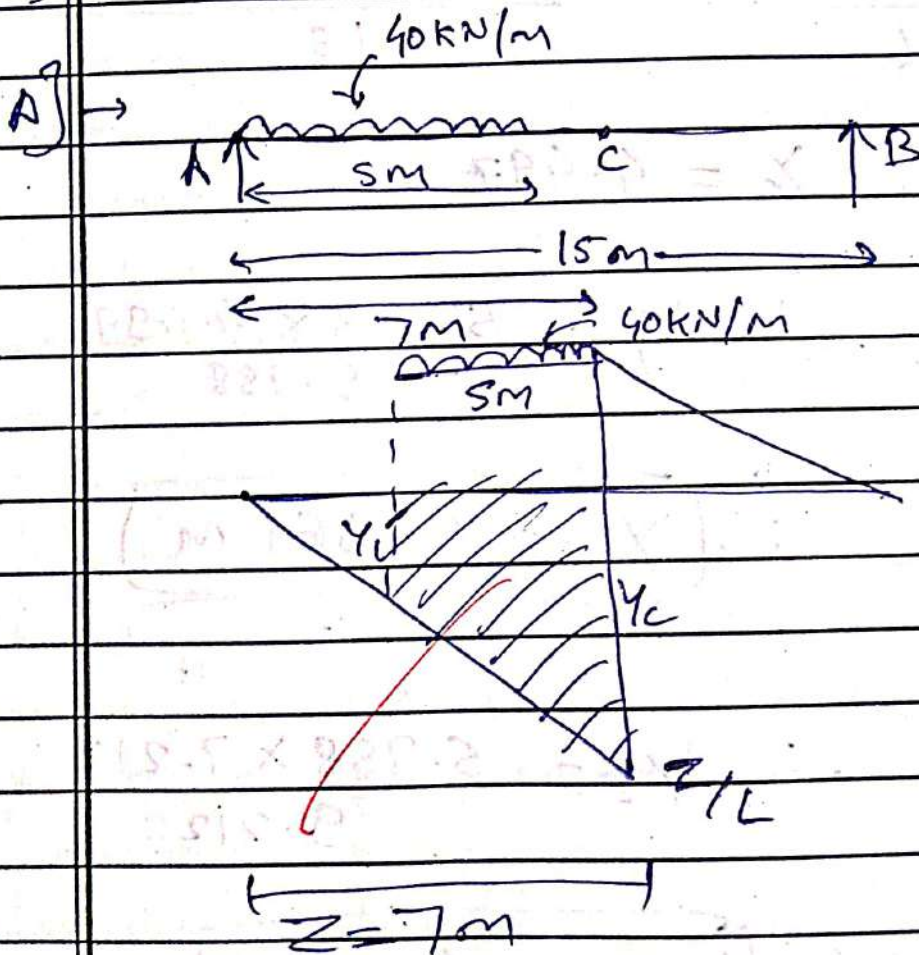 40KN/M
A] →
A
5M
C
B
15m
7M
40KN/M
5M
Y₁
Yc
Z/L
Z=7m